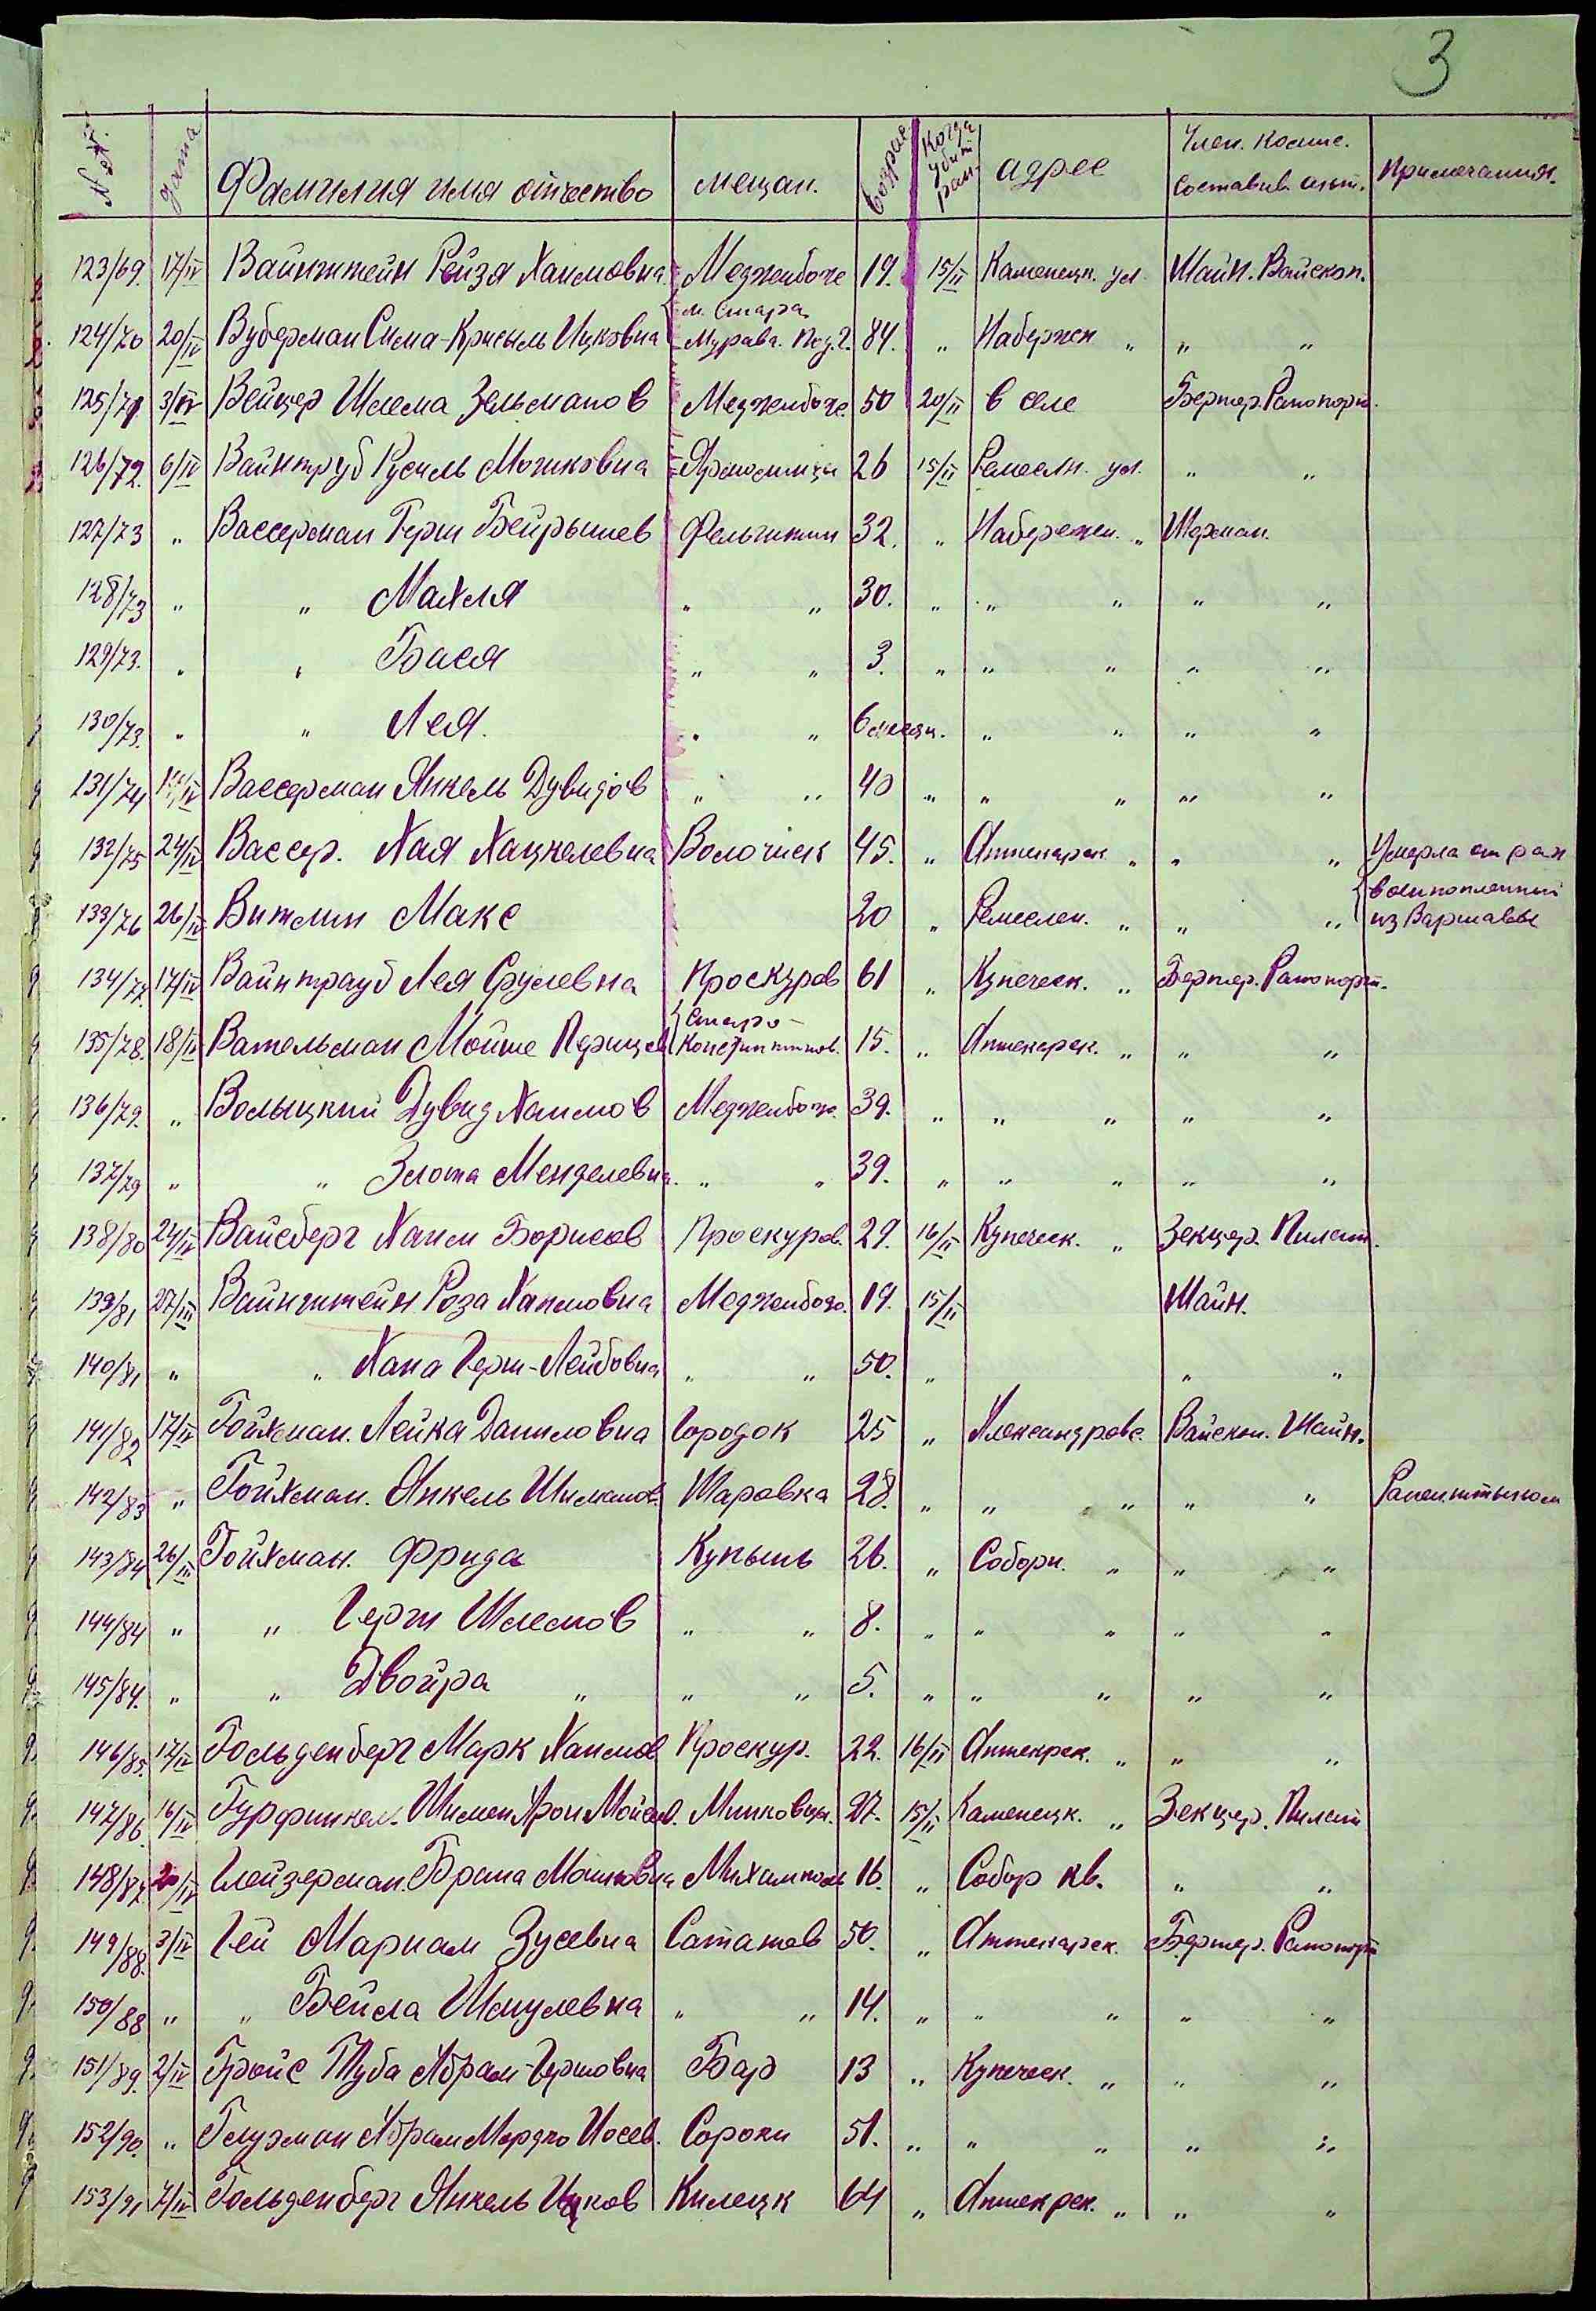 3
дата Фамилия имя отчество мещан. возрас. Когда убит ран. адрес Член. Комис. составив. анкт. Примечания.
123/69. 17/IV Вайнштейн Рейзя Хаимовна Меджибоже 19. 15/II Каменецк. ул. Шайн. Вайскоп.
124/70 20/IV Вуберман Сима-Крисыль Ицковна м. Стара Мурава. Под. Г. 84. " Набержн " " "
125/71 3/IV Вейцер Шлема Зельманов Меджибоже. 50 20/II в селе Бертер. Рапопорт.
126/72. 6/IV Вайнтруб Русиль Мошковна Ярмолинцы 26 15/II Ремеслн. ул. " "
127/73 " Вассерман Герш Бейрышев Фельштин 32. " Набережн. " Шерман.
128/73 " " Махля " " 30. " " " " "
129/73. " " Бася " " 3. " " " " "
130/73. " " Лея. " " 6 месяц. " " " "
131/74 /IV Вассерман Янкель Дувидов " " 40 " " " " "
132/75 24/IV Вассер. Хая Хацкелевна Волочиск 45. " Аптекарск " " " Умерла от ран
133/76 26/IV Витлин Макс 20 " Ремеслен. " " " военнопленный из Варшавы
134/77. 17/IV Вайнтрауб Лея Срулевна Проскуров 61 " Купеческ. " Бертер. Рапопорт.
135/78. 18/IV Вательман Мойше Перицев Старо-Констинтинов. 15. " Аптекарск. " " "
136/79. " Волыцкий Дувид Хаимов Меджибож. 39. " " " " "
137/79 " " Злота Менделевна. " " 39. " " " " "
138/80 24/IV Вайсберг Хаим Борисов Проскуров. 29. 16/II Купеческ. " Зекцер. Пиласт.
139/81 27/III Вайнштейн Роза Хаимовна Меджибож. 19. 15/II Шайн.
140/81 " " Хана Герш-Лейбовна " " 50. " " "
141/82 17/IV Гойхман. Лейка Даниловна Городок 25 " Александровс. Вайскоп. Шайн.
142/83 " Гойхман. Янкель Шиманов. Шаровка 28. " " " " " Ранен. штыком
143/84 26/III Гойхман. Фрида Купынь 26. " Соборн. " " "
144/84 " " Герш Шлемов " " 8. " " " " "
145/84. " " Двойра " " " 5. " " " " "
146/85. 17/IV Гольденберг Марк Хаимов Проскур. 22. 16/II Аптекрск. " " "
147/86. 16/IV Гурфинкел. Шимен Арон Мойсев. Миньковцы. 27. 15/II Каменецк. " Зекцер. Пиласт
148/87. 20/IV Глейзерман. Брана Мошковна Михампол 16. " Собор кв. " "
149/88. 3/IV Гей Мариам Зусевна Сатанов 50. " Аптекарск. Бертер. Рапопорт
150/88 " " Бейла Шмулевна " " 14. " " " " "
151/89. 2/IV Гройс Туба Абрам-Гершовна Бар 13 " Купеческ. " " "
152/90. " Глузман Абрам Мордко Иосев. Сороки 51. " " " " "
153/91 7/IV Гольденберг Янкель Ицков Килецк 64 " Аптекрск. " " "